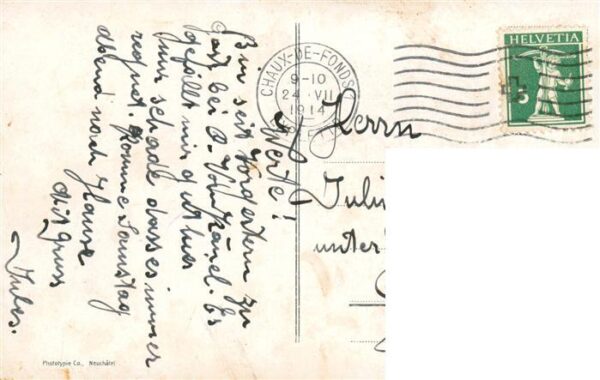 HELVETIA
5
CHAUX-DE-FONDS
9-10
24 VII
1914
Herrn
unter
Werte!
Bin seit vorgestern zu
Gast bei O. Es
gefällt mir gut hier
nur schade dass es immer
regnet. Komme Samstag
abend nach Hause
Mit Gruss
Jules.
Phototypie Co., Neuchâtel